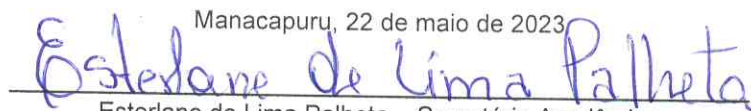 Manacapuru, 22 de maio de 2023
Esterlane de Lima Palheta
Esterlane de Lima Palheta